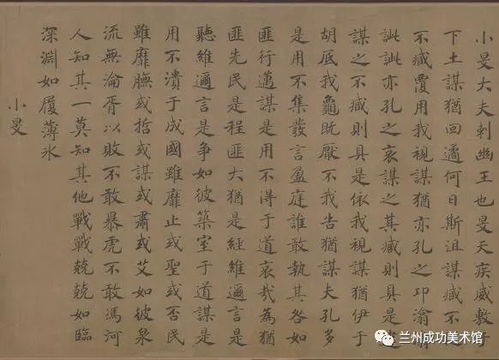 小旻大夫刺幽王也旻天疾威敷于
下土謀猶回遹何日斯沮謀臧不
不臧覆用我視謀猶亦孔之邛潝
訿訿亦孔之哀謀之其臧則具是
謀之不臧則具是依我視謀猶伊于
胡厎我龜既厭不我告猶謀夫孔多
是用不集發言盈庭誰敢執其咎如
匪行邁謀是用不得于道哀哉為猶
匪先民是程匪大猶是經維邇言是
聽維邇言是爭如彼築室于道謀是
用不潰于成國雖靡止或聖或否民
雖靡膴或哲或謀或肅或艾如彼泉
流無淪胥以敗不敢暴虎不敢馮河
人知其一莫知其他戰戰兢兢如臨
深淵如履薄冰
小旻
兰州成功美术馆